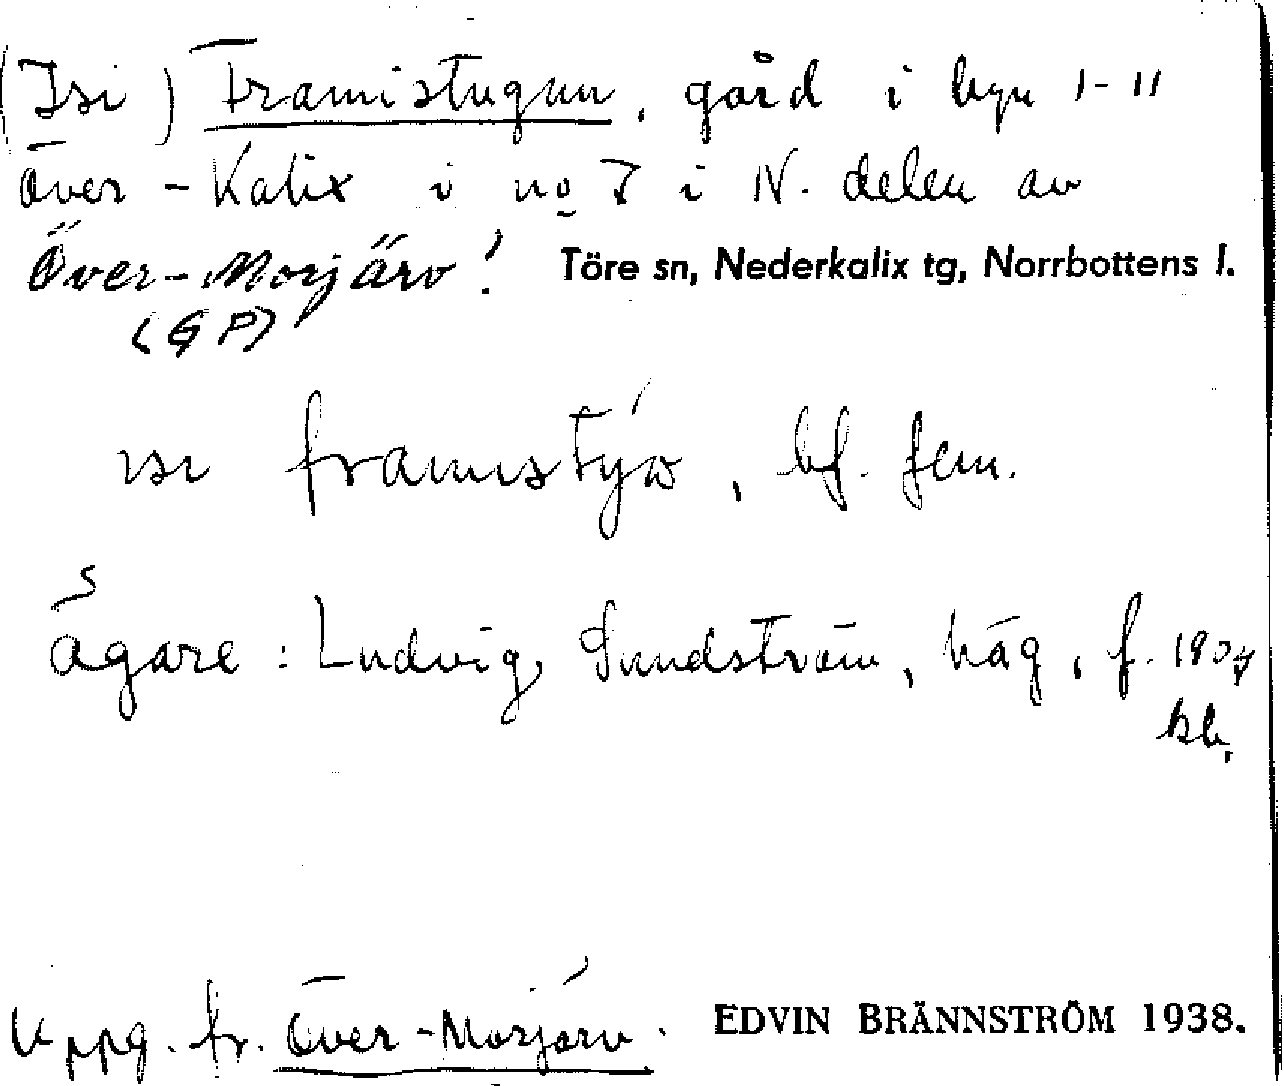 (Isi) Framistugun, gård i byn 1-11
Över-Kalix i no 7 i N. delen av
Över-Morjärv! Töre sn, Nederkalix tg, Norrbottens l.
(GP)
isi framistýo, bf. fem.
ägare: Ludvig Sundström, häg, f. 1904
kb.
Uppg. fr. Över-Morjärv. EDVIN BRÄNNSTRÖM 1938.